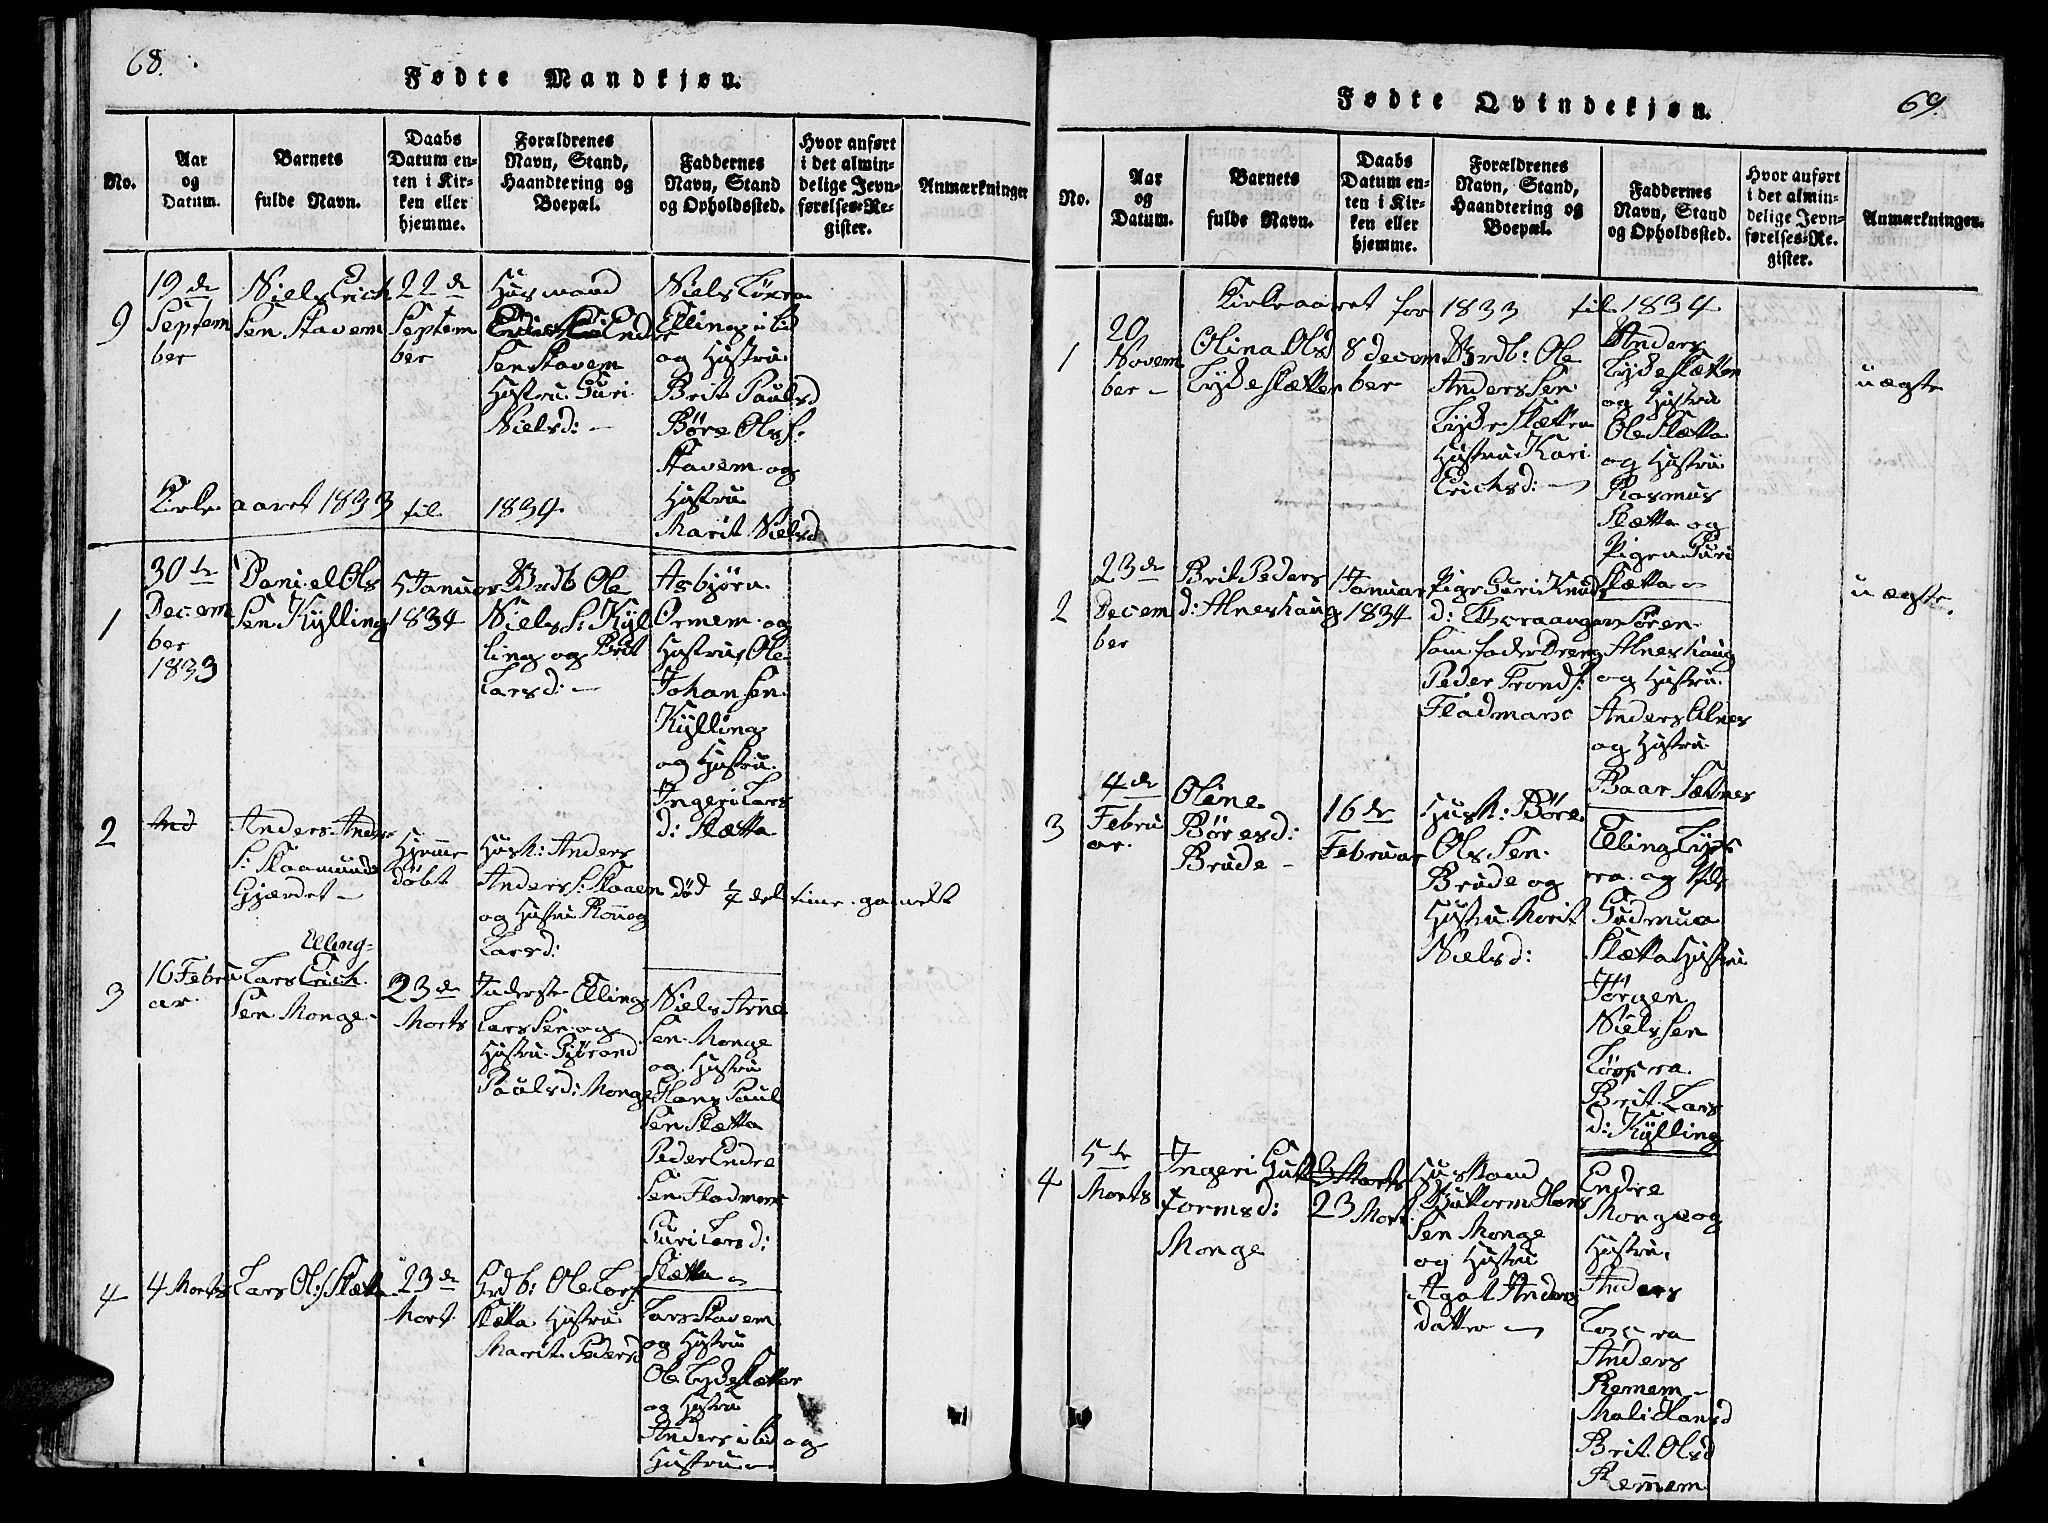 68.
Fødte Mandkjøn.
No.
Aar
og
Datum.
Barnets
fulde Navn.
Daabs
Datum en-
ten i Kir-
ken eller
hjemme.
Forældrenes
Navn, Stand,
Haandtering og
Boepæl.
Faddernes
Navn, Stand
og Opholdssted.
Hvor anført
i det almin-
delige Jevn-
førelses-Re-
gister.
Anmærkninger
9
19de
Septem
ber
Niels Erich
Sen Stavem
22de
Septem
ber
Husmand
Sen Stavem
Hustru Guri
Nielsd: -
Niels
Elling i lid
og Hustru
Brit Paulsd
Børe Ols:
Stavem og
Hustru
Marit Nielsd
Kirke aaret 1833 til 1834
1
30te
Decem
ber
1833
Daniel Ols
Sen Kylling
5 Januar
1834
Grdb Ole
Niels S: Kyl
ling og Brit
Larsd: -
Asbjørn
Ormem og
Hustru Ole
Johan Sen
Kylling
og Hustru
Ingeri Lars
d: Slætta
2
And
Anders Anders
S: Skaamunds
Gjærdet -
Hjemme
døbt
Husm: Anders
Anders S: Skaaen
og Hustru Ronnog
Larsd:
død 1/4 del time gamelt
3
16 Febru
ar.
Elling-
Lars Erich
Sen Monge -
23de
Morts
Inderste Elling
Lars Sen og
Hustru Gjørand
Paulsd: Monge
Niels Arne
Sen Monge
og Hustru
Hans Paul
Sen Slætta
Peder Endre
Sen Fladmark
Guri Larsd:
Slætta
4
4 Morts
Lars Ols: Slætta
23de
Mort.
Grdb: Ole Lars
Slætta Hustru
Marit Pedersd
Lars Stavem
og Hustru
Ole Lyde Slætten
og Hustru
Anders i lid og
Hustru
69.
Fødte Qvindekjøn.
No.
Aar
og
Datum.
Barnets
fulde Navn.
Daabs
Datum en-
ten i Kir-
ken eller
hjemme.
Forældrenes
Navn, Stand,
Haandtering og
Boepæl.
Faddernes
Navn, Stand
og Opholdssted.
Hvor anført
i det almin-
delige Jevn-
førelses-Re-
gister.
Anmærkninger.
Kirke aaret for 1833 til 1834
1
20
Novem
ber -
Olina Olsd
Lyde Slætten
8 Decem
ber
Grdb: Ole
Anders Sen
Lyde Slætten
Hustru Kari
Erichsd: -
Anders
Lyde Slætten
og Hustru
Ole Slætta
og Hustru
Rasmus
Slætta og
Pigen Guri
Slætta
uægte
2
23de
Decem
ber
Brit Peders
d: Alneshaug
1 Januar
1834
Pige Guri Knuds
d:
som fader Dreng
Peder Tronds:
Fladmark
Søren
Alneshaug
og Hustru
Anders Alnes
og Hustru
Baar Sætnes
uægte.
3
4de
Febru
ar.
Oline
Børesd:
Brude -
16de
Februar
Husm: Børe
Ols Sen
Brude og
Hustru Marit
Nielsd:
Elling
og
Gudmun
Slætta Hustru
Jørgen
Niels Sen
Brit Lars
d: Kylling
4
5te
Morts
Ingeri Gut
tormsd:
Monge
3 Morts
23 Mort.
Husmand
Guttorm Hans
Sen Monge
og Hustru
Agat Anders
datter
Endre
Monge og
Hustru
Anders
Anders
Remem -
Mali Hansd
Brit Olsd
Remmem